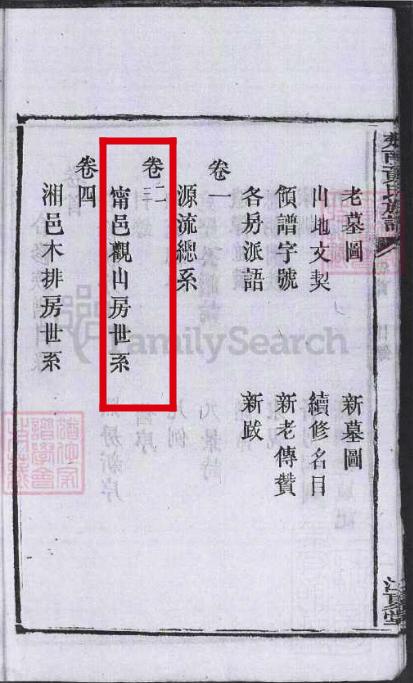 老墓圖 新墓圖
山地文契 續修名目
領譜字號 新老傳贊
各房派語 新跋
卷一
源流總系
卷二三
甯邑觀山房世系
卷四
湘邑木排房世系
江夏堂
FamilySearch